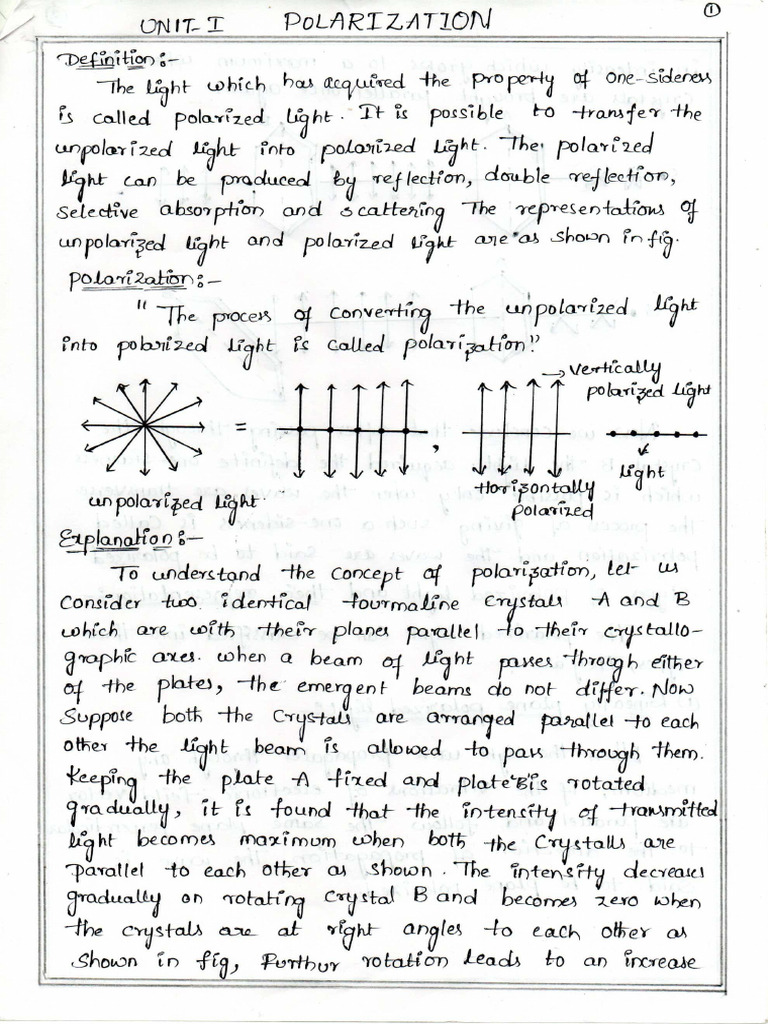 UNIT-I POLARIZATION
1
Definition:-
The light which has acquired the property of one-sideness
is called polarized light. It is possible to transfer the
unpolarized light into polarized light. The polarized
light can be produced by reflection, double reflection,
selective absorption and scattering The representations of
unpolarized light and polarized light are as shown in fig.
Polarization:-
" The process of converting the unpolarized light
into polarized light is called polarization."
→ vertically
polarized light
= ,
Light
Horizontally
polarized
unpolarized light
Explanation:-
To understand the concept of polarization, let us
consider two identical tourmaline crystals A and B
which are with their planes parallel to their crystallo-
graphic axes. when a beam of light passes through either
of the plates, the emergent beams do not differ. Now
Suppose both the Crystals are arranged parallel to each
other the light beam is allowed to pass through them.
Keeping the plate A fixed and plate B is rotated
gradually, it is found that the intensity of transmitted
light becomes maximum when both the Crystalls are
parallel to each other as shown. The intensity decreases
gradually on rotating crystal B and becomes zero when
the crystals are at right angles to each other as
Shown in fig, Furthur rotation leads to an increase